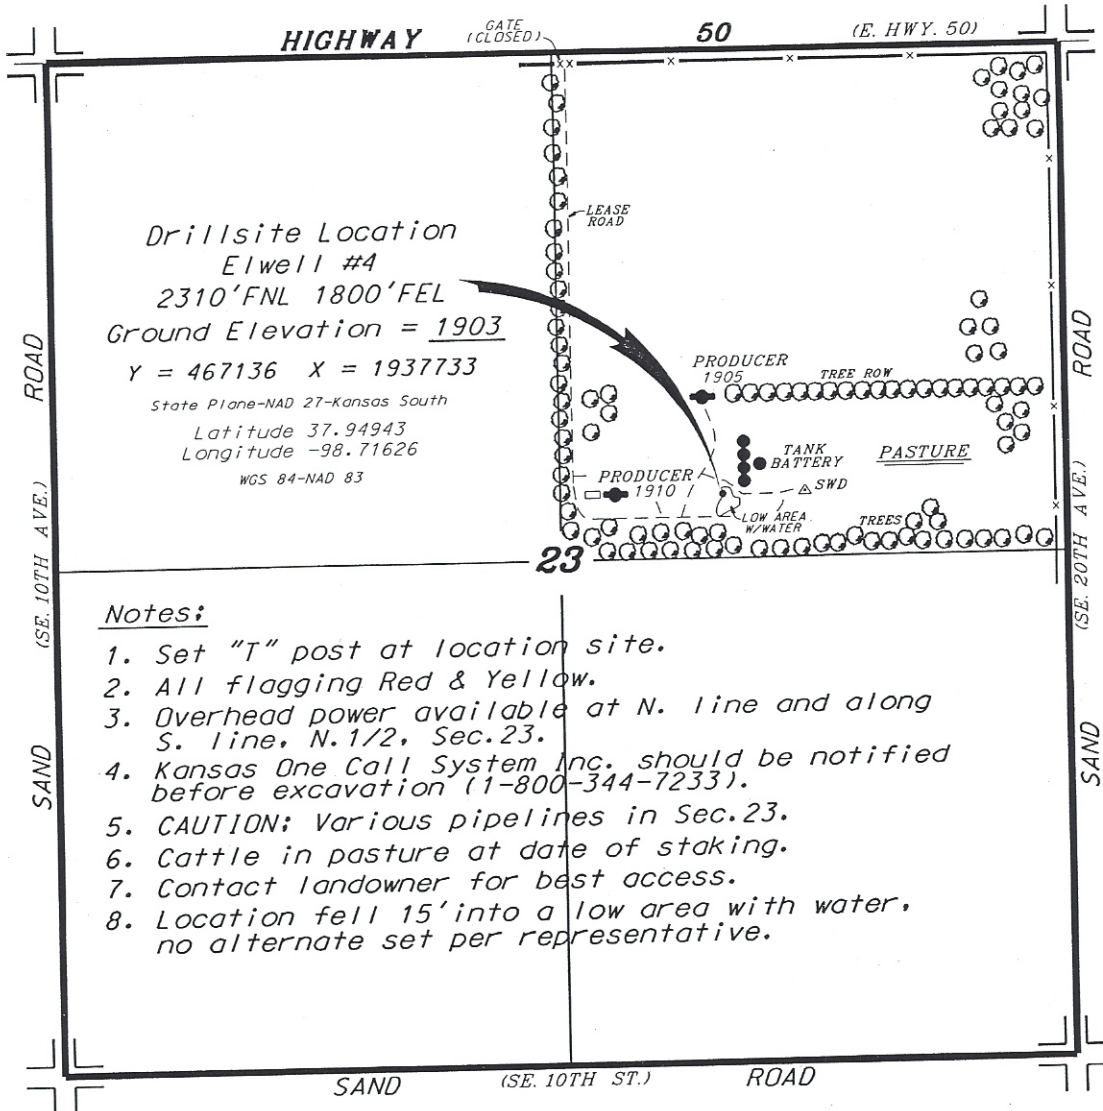 GATE
(CLOSED)
HIGHWAY 50 (E. HWY. 50)
LEASE
ROAD
Drillsite Location
Elwell #4
2310'FNL 1800'FEL
Ground Elevation = 1903
Y = 467136 X = 1937733
State Plane-NAD 27-Kansas South
Latitude 37.94943
Longitude -98.71626
WGS 84-NAD 83
PRODUCER
1905
TREE ROW
TANK
BATTERY
PASTURE
PRODUCER
1910
SWD
LOW AREA
W/WATER
TREES
23
SAND (SE. 10TH AVE.) ROAD
SAND (SE. 20TH AVE.) ROAD
Notes:
1. Set "T" post at location site.
2. All flagging Red & Yellow.
3. Overhead power available at N. line and along
S. line, N.1/2, Sec.23.
4. Kansas One Call System Inc. should be notified
before excavation (1-800-344-7233).
5. CAUTION: Various pipelines in Sec.23.
6. Cattle in pasture at date of staking.
7. Contact landowner for best access.
8. Location fell 15'into a low area with water,
no alternate set per representative.
SAND (SE. 10TH ST.) ROAD